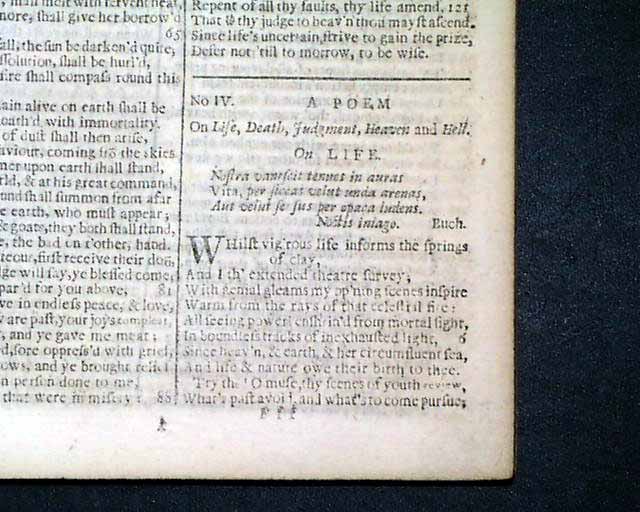 , man melt with fervent heat,
more, shall give her borrow'd
65
fall, the sun be darken'd quite,
ssolution, shall be hurl'd,
fire shall compass round this
ain alive on earth shall be
loath'd with immortality.
of dust shall then arise,
aviour, coming frõ the skies
mer upon earth shall stand,
rld, & at his great command,
ound summon from afar
e earth, who must appear;
& goats, they both shall stand,
e, the bad on t'other, hand.
teous, first receive their doõ,
dge will say, ye blessed come,
par'd for you above; 81
ve in endless peace, & love,
w are past, your joys compleat,
, and ye gave me meat:
d, sore oppress'd with grief,
ows, and ye brought relief
n person done to me,
that were in misery: 88
Repent of all thy faults, thy life amend. 125
That thy judge to heav'n thou mayst ascend.
Since life's uncertain, strive to gain the prize,
Defer not 'till to morrow, to be wise.
No IV. A POEM
On Life, Death, Judgment, Heaven and Hell.
On LIFE.
Nostra vanescit tenues in auras
Vita, per siccas velut unda arenas,
Aut velut se sus per opaca ludens.
Noctis imago. Buch.
WHilst vig'rous life informs the springs
of clay,
And I th' extended theatre survey;
With genial gleams my op'ning scenes inspire
Warm from the rays of that celestial fire:
All seeing power! enshrin'd from mortal sight,
In boundless tracks of inexhausted light, 6
Since heav'n, & earth, & her circumfluent sea,
And life & nature owe their birth to thee.
Try thē O muse, thy scenes of youth review,
What's past avoid, and what's to come pursue;